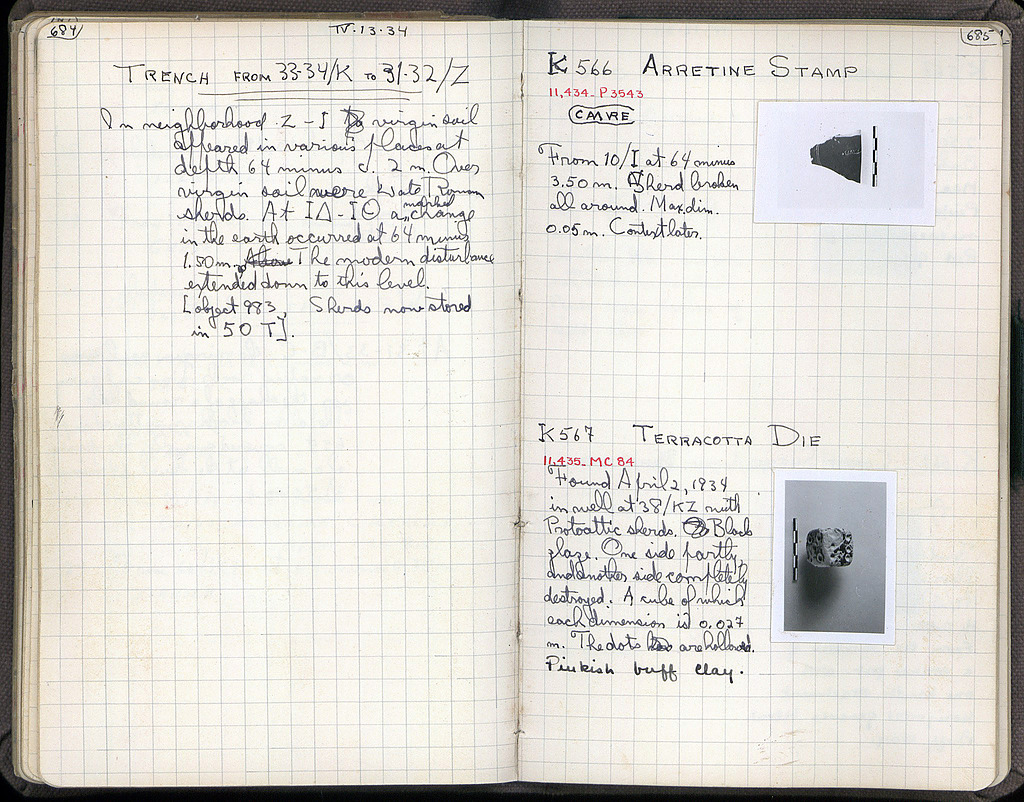 684
IV·13·34
TRENCH FROM 33-34/K TO 31-32/Z
In neighborhood Z-I virgin soil
appeared in various places at
depth 64 minus c. 2 m. Over
virgin soil were late Roman
sherds. At IΔ-IΘ a marked change
in the earth occurred at 64 minus
1.50 m. The modern disturbance
extended down to this level.
[object 983, Sherds now stored
in 50 T].
685
K 566 ARRETINE STAMP
11,434- P3543
From 10/I at 64 minus
3.50 m. Sherd broken
all around. Max. dim.
0.05 m. Context later.
K 567 TERRACOTTA DIE
11,435- MC 84
Found April 2, 1934
in well at 38/KZ with
Protoattic sherds. Black
glaze. One side partly
and another side completely
destroyed. A cube of which
each dimension is 0.027
m. The dots are hollowed.
Pinkish buff clay.